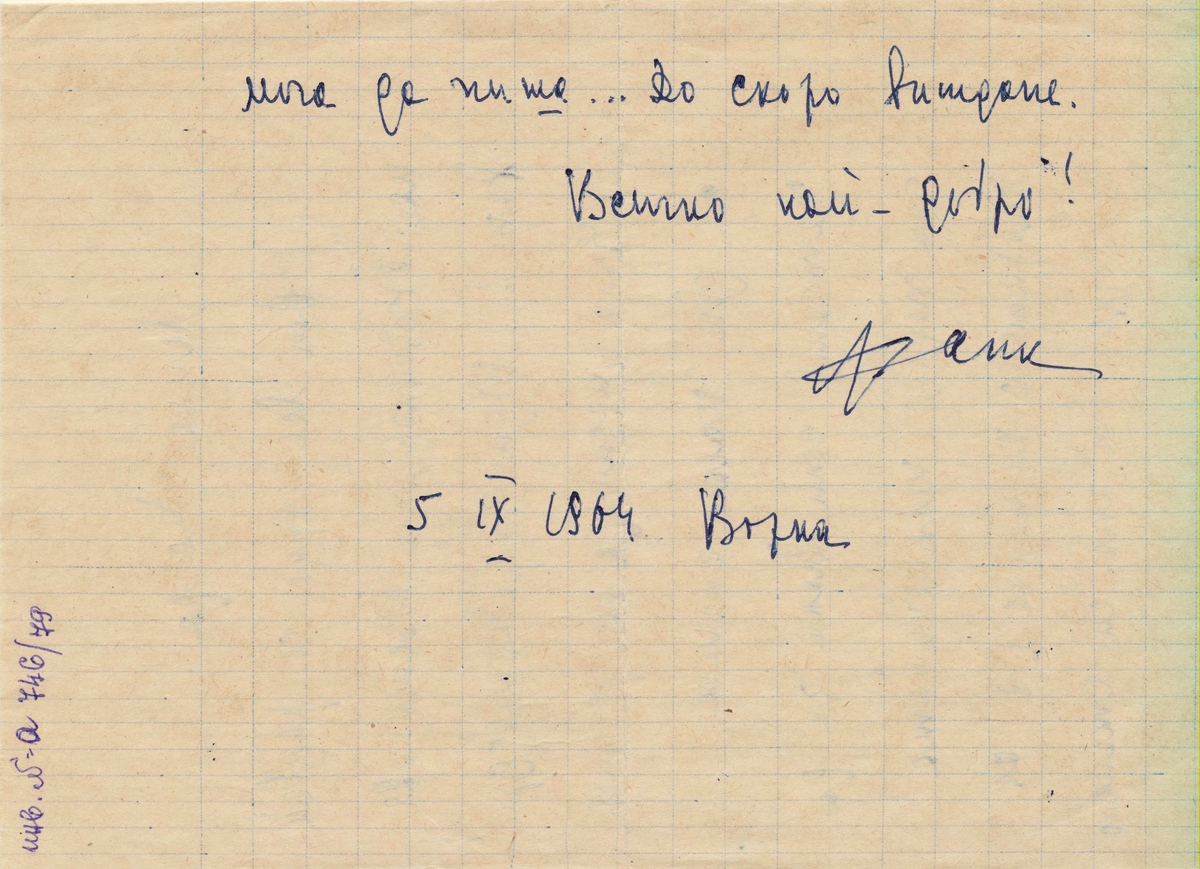 мога да пиша... До скоро виждане.
Всичко най-добро!
5 IX 1964 Варна
инв. №=а 746/79